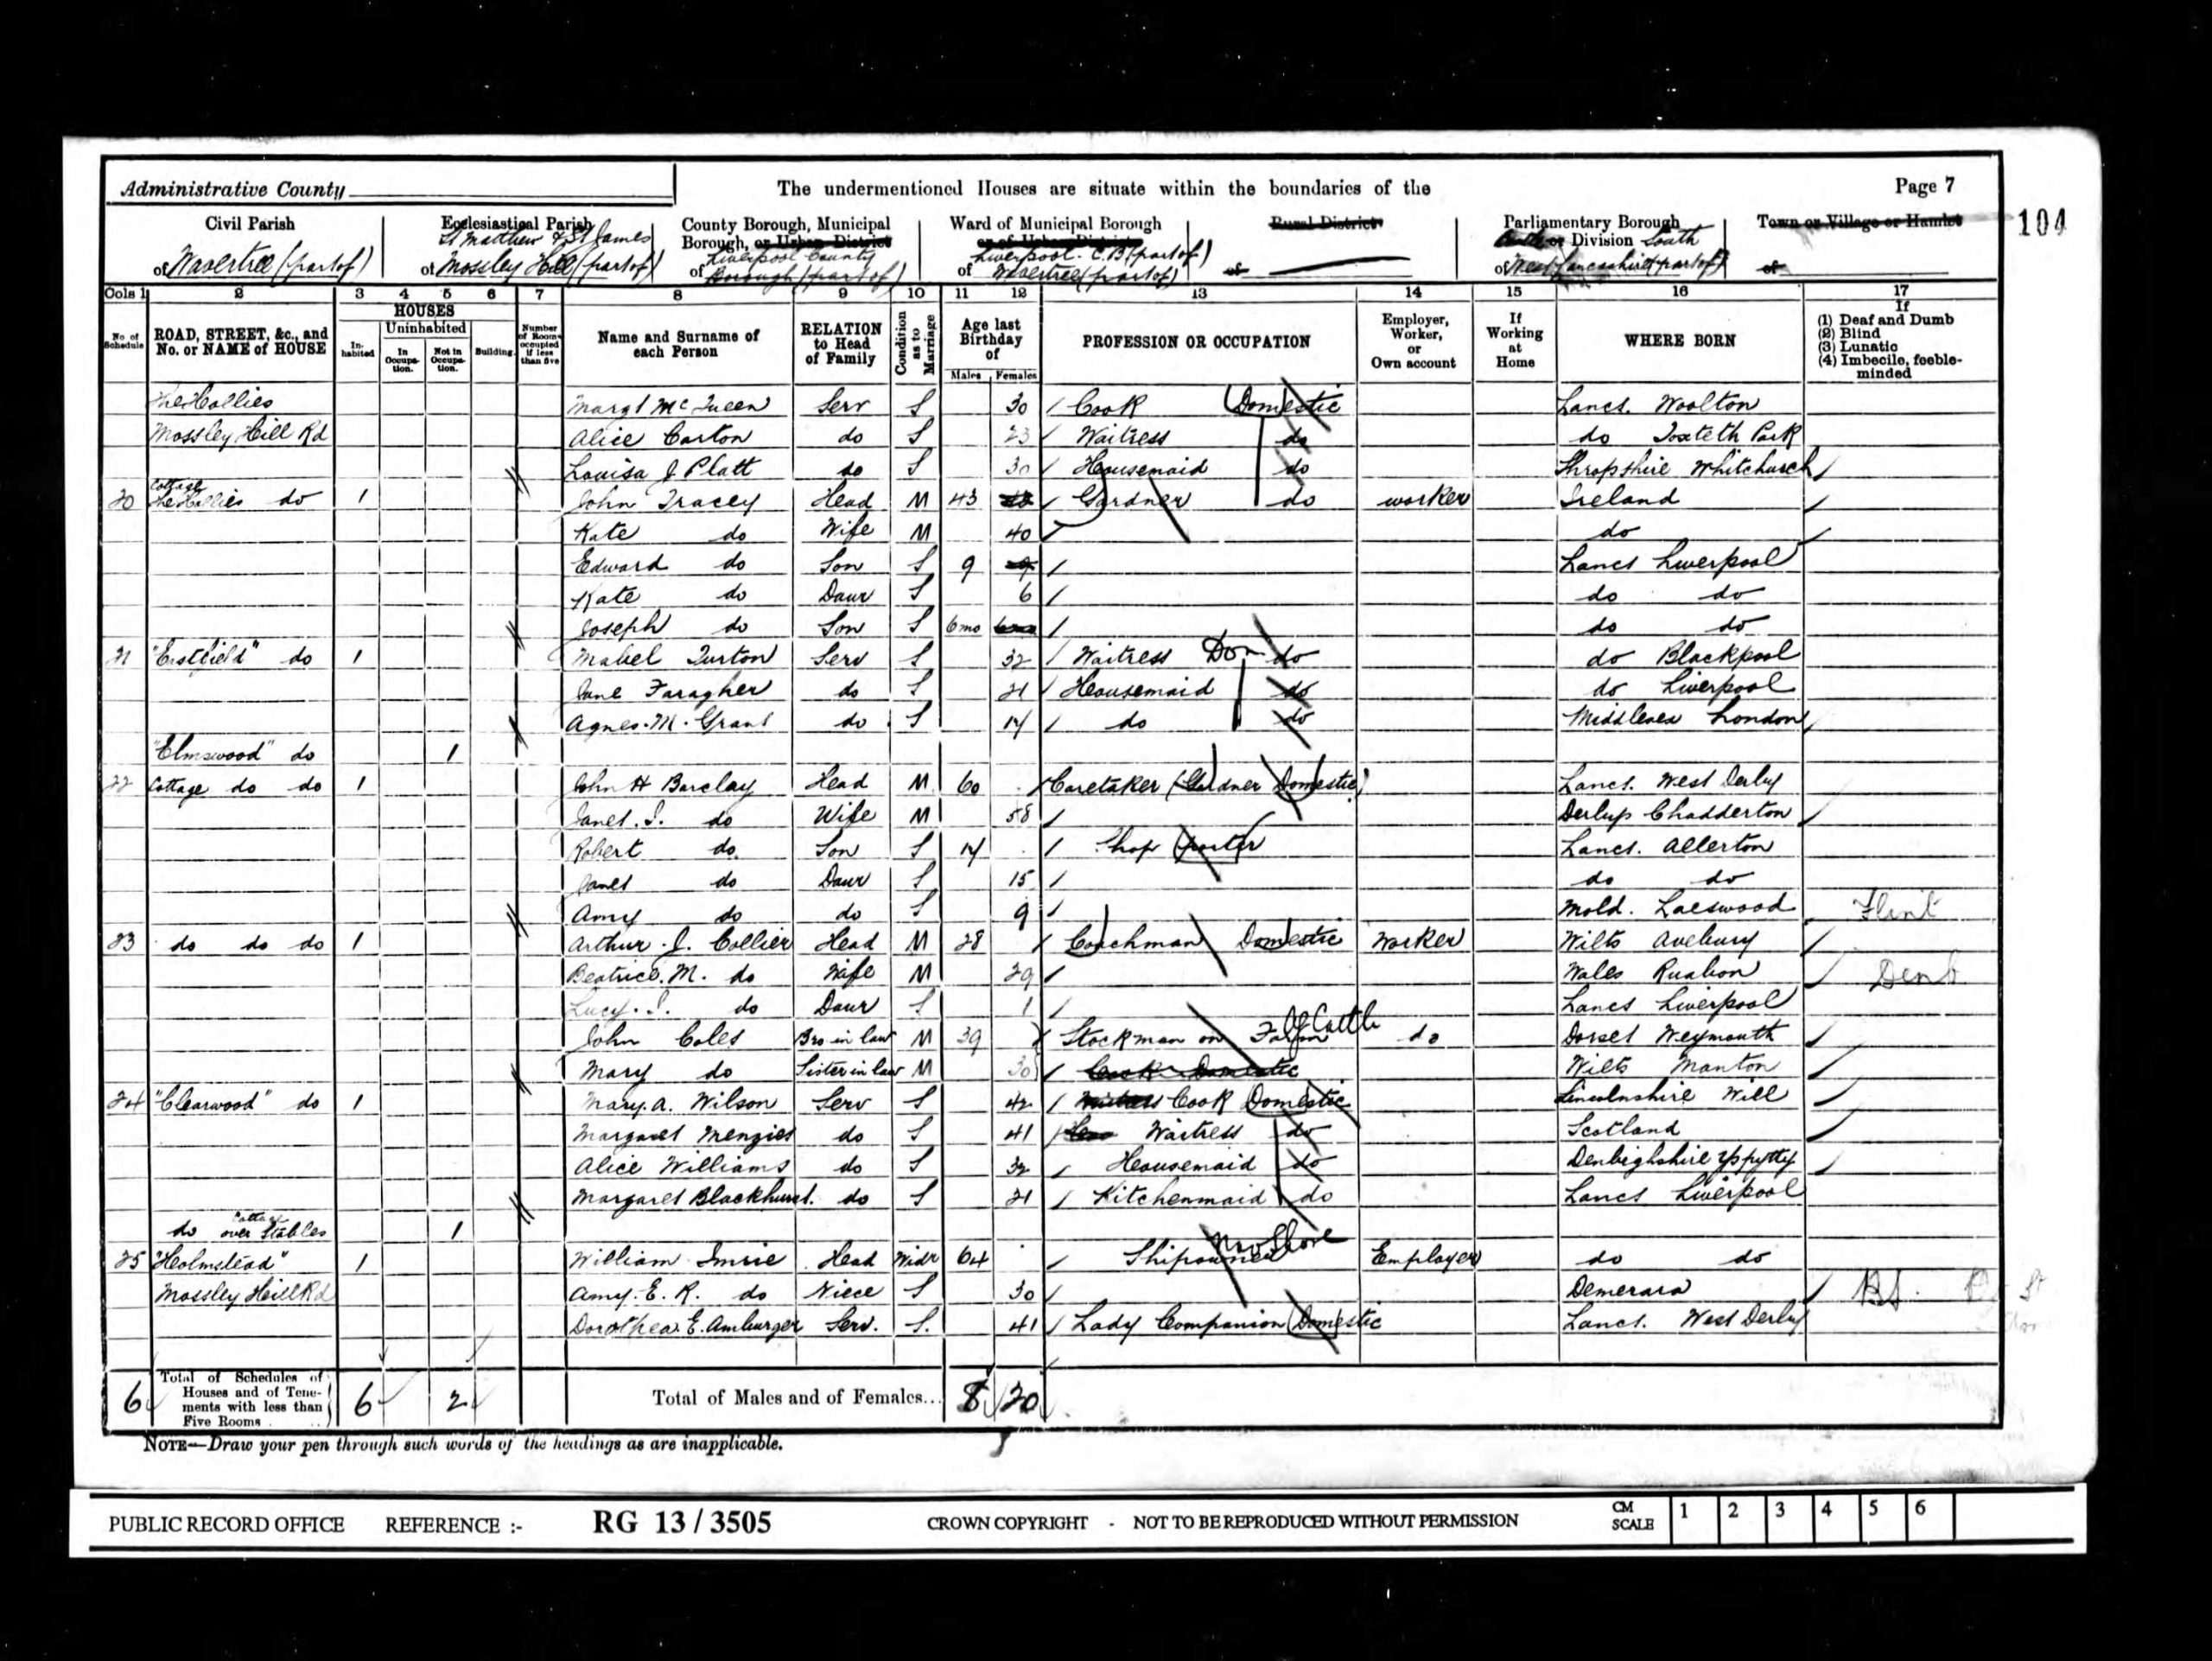 Administrative County
The undermentioned Houses are situate within the boundaries of the
Page 7
104
Civil Parish
of Wavertree (part of)
Ecclesiastical Parish
St Matthew & St James
of Mossley Hill (part of)
County Borough, Municipal
Borough, or Urban District
Liverpool County
of Borough (part of)
Ward of Municipal Borough
or of Urban District
Liverpool. C.B (part of)
of Wavertree (part of)
Rural District
of
Parliamentary Borough
or Division South
of West Lancashire (part of)
Town or Village or Hamlet
of
Cols 1 2 3 4 5 6 7 8 9 10 11 12 13 14 15 16 17
No of Schedule
ROAD, STREET, &c., and No. or NAME of HOUSE
HOUSES
In-habited
Uninhabited
In Occupa-tion.
Not in Occupa-tion.
Building.
Number of Rooms occupied if less than five
Name and Surname of each Person
RELATION to Head of Family
Condition as to Marriage
Age last Birthday of
Males Females
PROFESSION OR OCCUPATION
Employer, Worker, or Own account
If Working at Home
WHERE BORN
If
(1) Deaf and Dumb
(2) Blind
(3) Lunatic
(4) Imbecile, feeble-minded
The Hollies Margt McQueen Serv S 30 Cook Domestic Lancs. Woolton
Mossley Hill Rd Alice Carton do S 23 Waitress do do Toxteth Park
Louisa J Platt do S 30 Housemaid do Shropshire Whitchurch
20 The Hollies Cottage do 1 John Tracey Head M 43 Gardner do worker Ireland
Kate do Wife M 40 do
Edward do Son S 9 Lancs Liverpool
Kate do Daur S 6 do do
Joseph do Son S 6mo do do
21 do 1 Mabel Turton Serv S 32 Waitress Dom do do Blackpool
Jane Faragher do S 21 Housemaid do do Liverpool
Agnes. M. Grant do S 17 do do Middlesex London
"Elmswood" do 1
22 Cottage do do 1 John H Barclay Head M 60 Caretaker (Gardner Domestic) Lancs. West Derby
Janet. S. do Wife M 58 Chadderton
Robert do Son S 17 Shop porter Lancs. Allerton
Janet do Daur S 15 do do
Amy do do S 9 Mold. Flint
23 do do do 1 Arthur. J. Collier Head M 28 Coachman Domestic Worker Wilts Avebury
Beatrice. M. do Wife M 29 Wales Ruabon Denb
Lucy. do Daur S 1 Lancs Liverpool
John Coles Bro in law M 39 Stockman on Farm Cattle do Dorset Weymouth
Mary do Sister in law M 30 Cook Domestic Wilts Manton
24 "Clearwood" do 1 Mary. A. Wilson Serv S 42 Cook Domestic Lincolnshire Will
Margaret Menzies do S 41 Waitress do Scotland
Alice Williams do S 32 Housemaid do Denbighshire Yspytty
Margaret Blackhurst. do S 21 Kitchenmaid do Lancs Liverpool
do Cottage over Stables 1
25 "Holmstead" 1 William Imrie Head Widr 64 Shipowner Employer do do
Mossley Hill Rd Amy. E. R. do Niece S 30 Demerara
Dorothea. E. Amburger Serv. S. 41 Lady Companion Domestic Lancs. West Derby
6 Total of Schedules of Houses and of Tene-ments with less than Five Rooms 6 2 Total of Males and of Females... 8 20
NOTE—Draw your pen through such words of the headings as are inapplicable.
PUBLIC RECORD OFFICE REFERENCE :- RG 13 / 3505 CROWN COPYRIGHT - NOT TO BE REPRODUCED WITHOUT PERMISSION CM SCALE 1 2 3 4 5 6